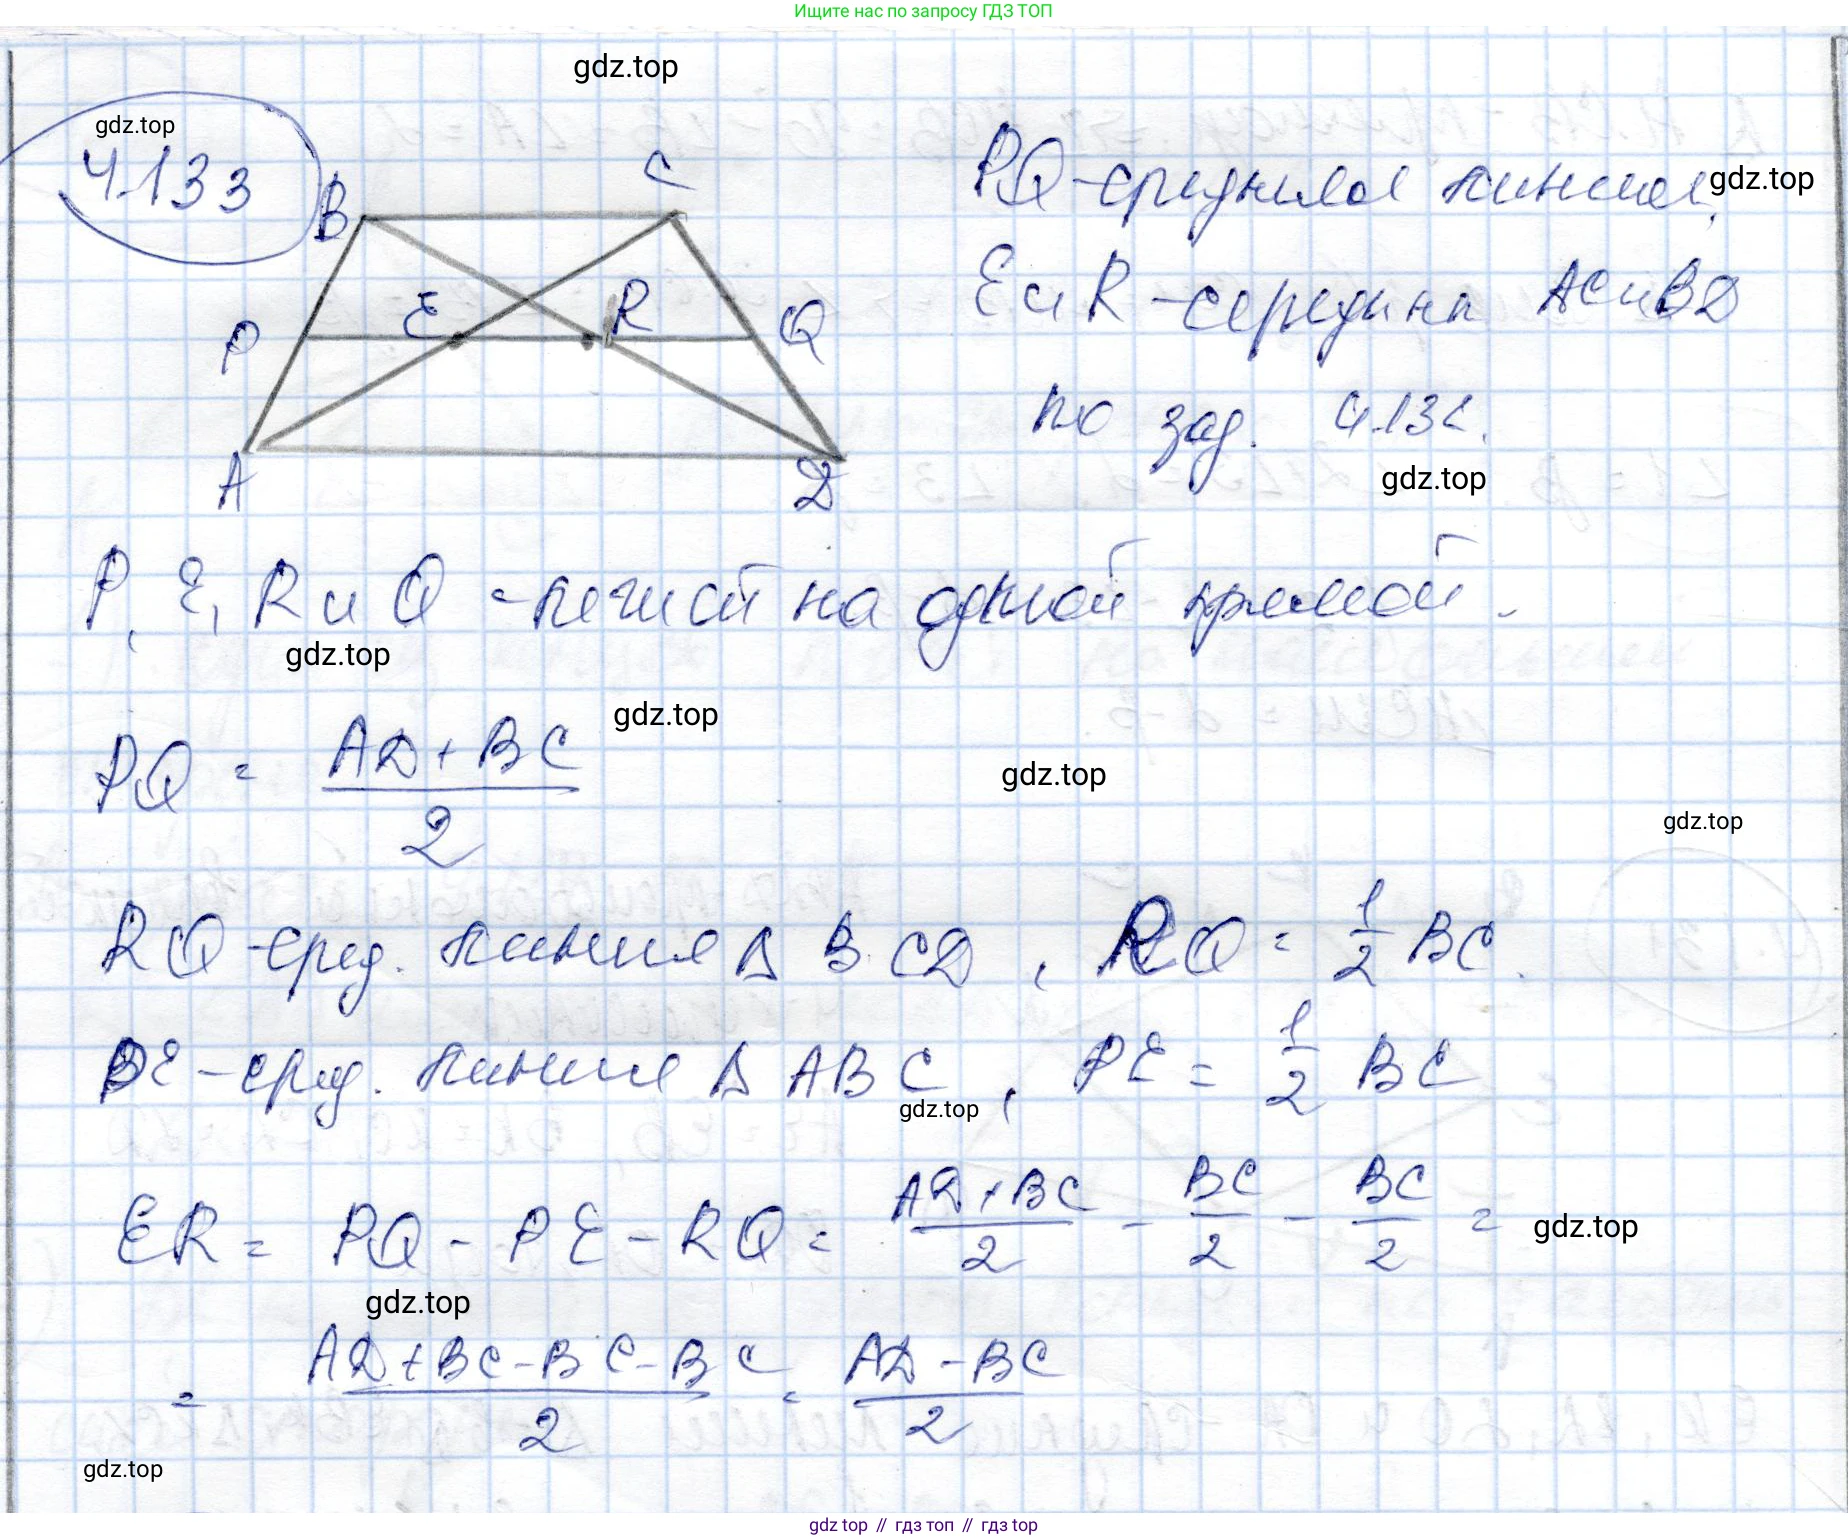 Ищите нас по запросу ГДЗ ТОП
gdz.top
gdz.top
4.133
B
C
P
E
R
Q
A
D
PQ - средняя линия, gdz.top
E и R - середины AC и BD
по зад. 4.132.
gdz.top
P, E, R и Q - лежит на одной прямой.
gdz.top
gdz.top
PQ = AD + BC / 2
gdz.top
gdz.top
RQ - сред. линия Δ BCD, RQ = 1/2 BC.
PE - сред. линия Δ ABC, PE = 1/2 BC
gdz.top
ER = PQ - PE - RQ = AD + BC / 2 - BC / 2 - BC / 2 =
gdz.top
gdz.top
= AD + BC - BC - BC / 2 = AD - BC / 2
gdz.top
gdz top // гдз топ // гдз top